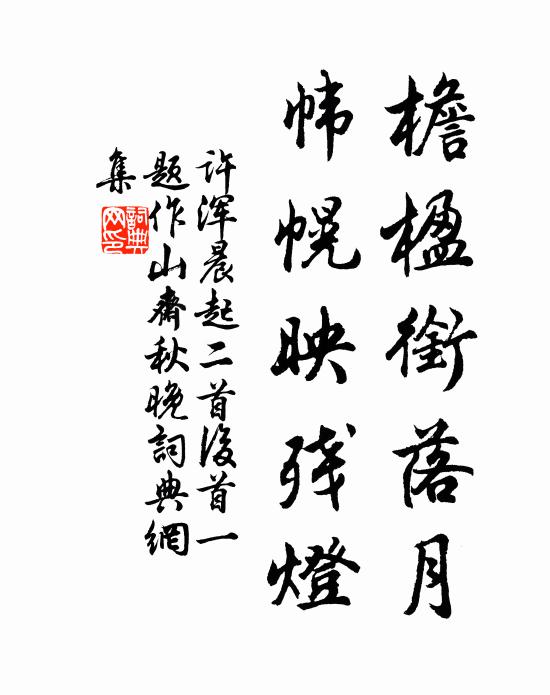 檐楹銜落月
帏幌映残燈
许浑晨起二首後首一
题作山齋秋晚詞典網
集
詞典网印